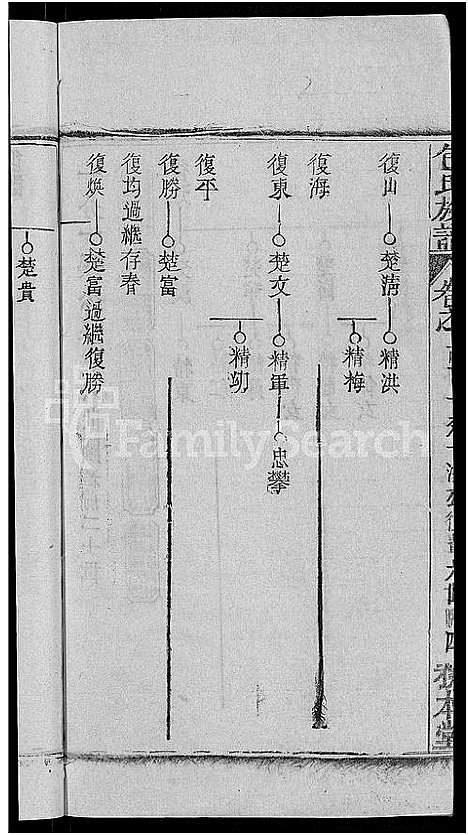 包氏族譜
復山 楚清 精洪
精梅
復海
復東 楚文 精軍 忠攀
精功
復平
復勝 楚富
復均過繼存春
復煥 楚富過繼復勝
楚貴
FamilySearch